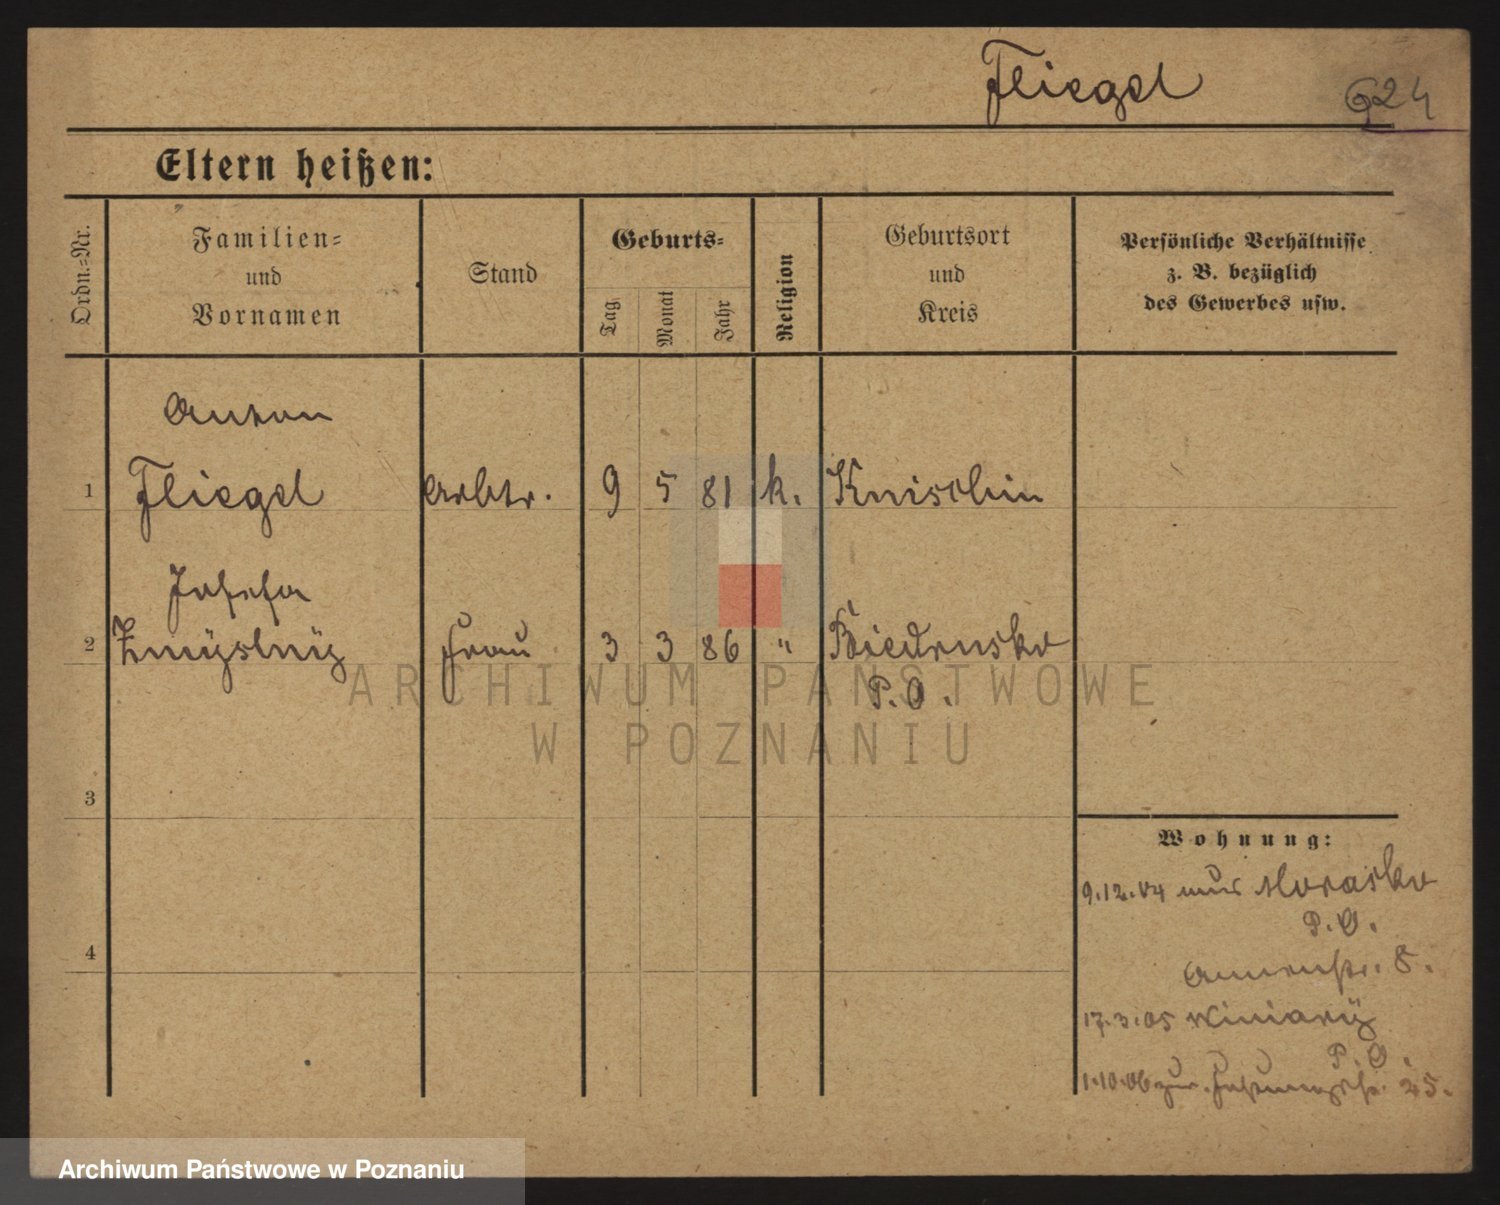 Fliegel
624
Eltern heißen:
Ordn.-Nr.
Familien-
und
Vornamen
Stand
Geburts-
Tag
Monat
Jahr
Religion
Geburtsort
und
Kreis
Persönliche Verhältnisse
z. B. bezüglich
des Gewerbes usw.
Anton
1 Fliegel Arbtr. 9 5 81 k. Knischin
Josefa
2 Zmÿslnÿ Frau 3 3 86 " Biedrusko
P. O.
ARCHIWUM PAŃSTWOWE
W POZNANIU
3
Wohnung:
9.12.04 aus Morasko
P. O.
4
Annenstr. 8.
17.3.05 Winiarÿ
P. O.
1.10.06 zur. 25.
Archiwum Państwowe w Poznaniu